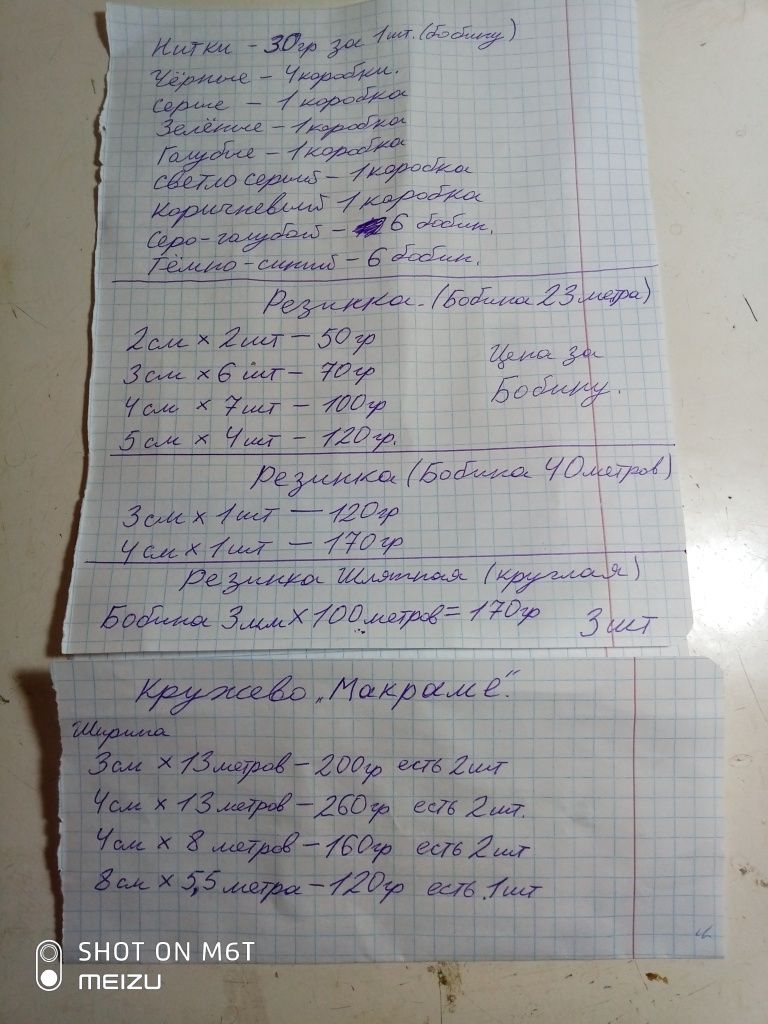 Нитки - 30гр за 1шт. (бобину)
Чёрные - 4 коробки.
Серые - 1 коробка
Зелёные - 1 коробка
Голубые - 1 коробка
Светло серый - 1 коробка
Коричневый 1 коробка
Серо-голубой - 6 бобин.
Тёмно-синий - 6 бобин.
Резинка. (Бобина 23 метра)
2см × 2шт - 50гр
3см × 6 шт - 70гр
Цена за
4см × 7шт - 100гр
Бобину.
5см × 4шт - 120гр.
Резинка (Бобина 40 метров)
3см × 1шт - 120гр
4см × 1шт - 170гр
Резинка Шляпная (круглая)
Бобина 3мм × 100 метров = 170гр 3шт
Кружево "Макраме".
Ширина
3см × 13 метров - 200гр есть 2шт
4см × 13 метров - 260гр есть 2шт.
4см × 8 метров - 160гр есть 2шт
8см × 5,5 метра - 120гр есть 1шт
SHOT ON M6T
MEIZU